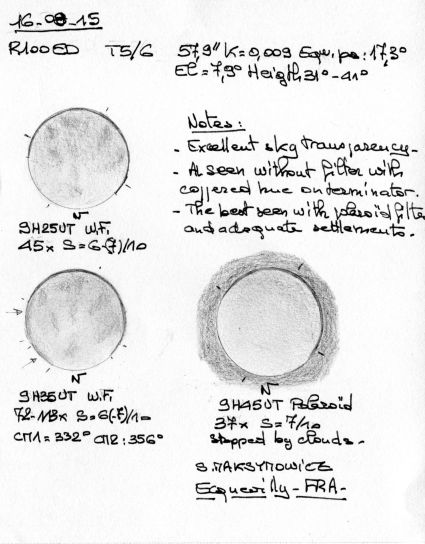 16-08-15
R100ED T5/6 57,9" K=0,009 Equ.ps: 17,3°
El=7,9° Heigth 31°-41°
Notes:
- Excellent sky transparency-
- As seen without filter with
coppered hue on terminator.
- The best seen with polaroid filter
and adequate settlements.
9H25UT W.Fi
45x S=6-(7)/10
N
9H35UT W.Fi
72-113x S=6(-7)/10
CM1=332° CM2:356°
N
9H45UT Polaroid
37x S=7/10
stopped by clouds-
N
S.MAKSYMOWICZ
Ecquevilly-FRA-